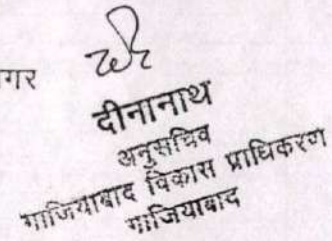 गर
दीनानाथ
अनुसचिव
गाजियाबाद विकास प्राधिकरण
गाजियाबाद